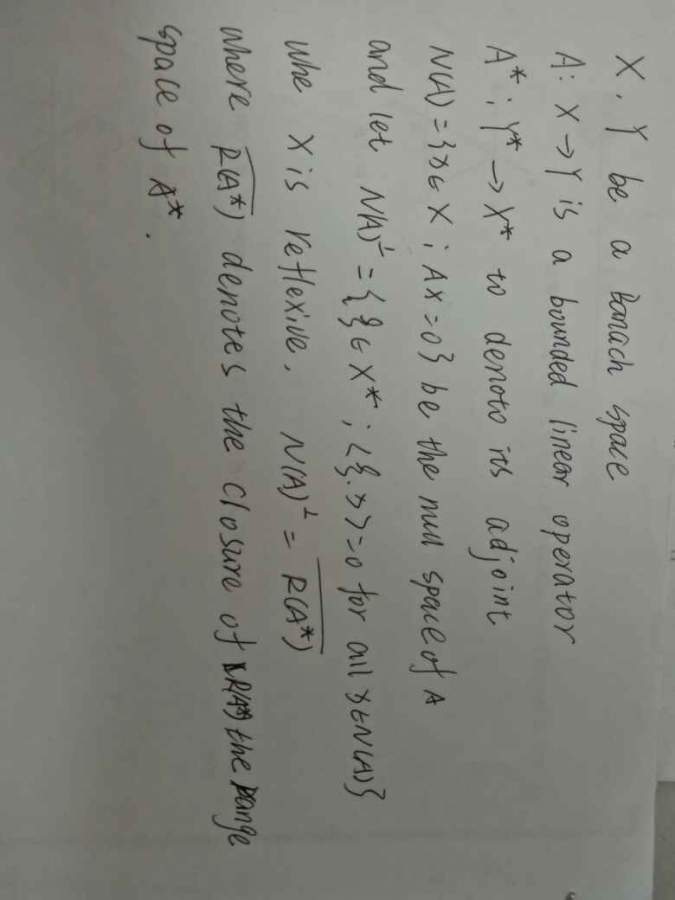 X, Y be a Banach space
A: X → Y is a bounded linear operator
A* : Y* → X* to denoto its adjoint
N(A) = {x ∈ X ; Ax = 0} be the null space of A
and let N(A)^⊥ = {ξ ∈ X* ; <ξ, x> = 0 for all x ∈ N(A)}
Whe X is reflexive, N(A)^⊥ = \overline{R(A*)}
where \overline{R(A*)} denotes the closure of R(A*) the range
space of A*.